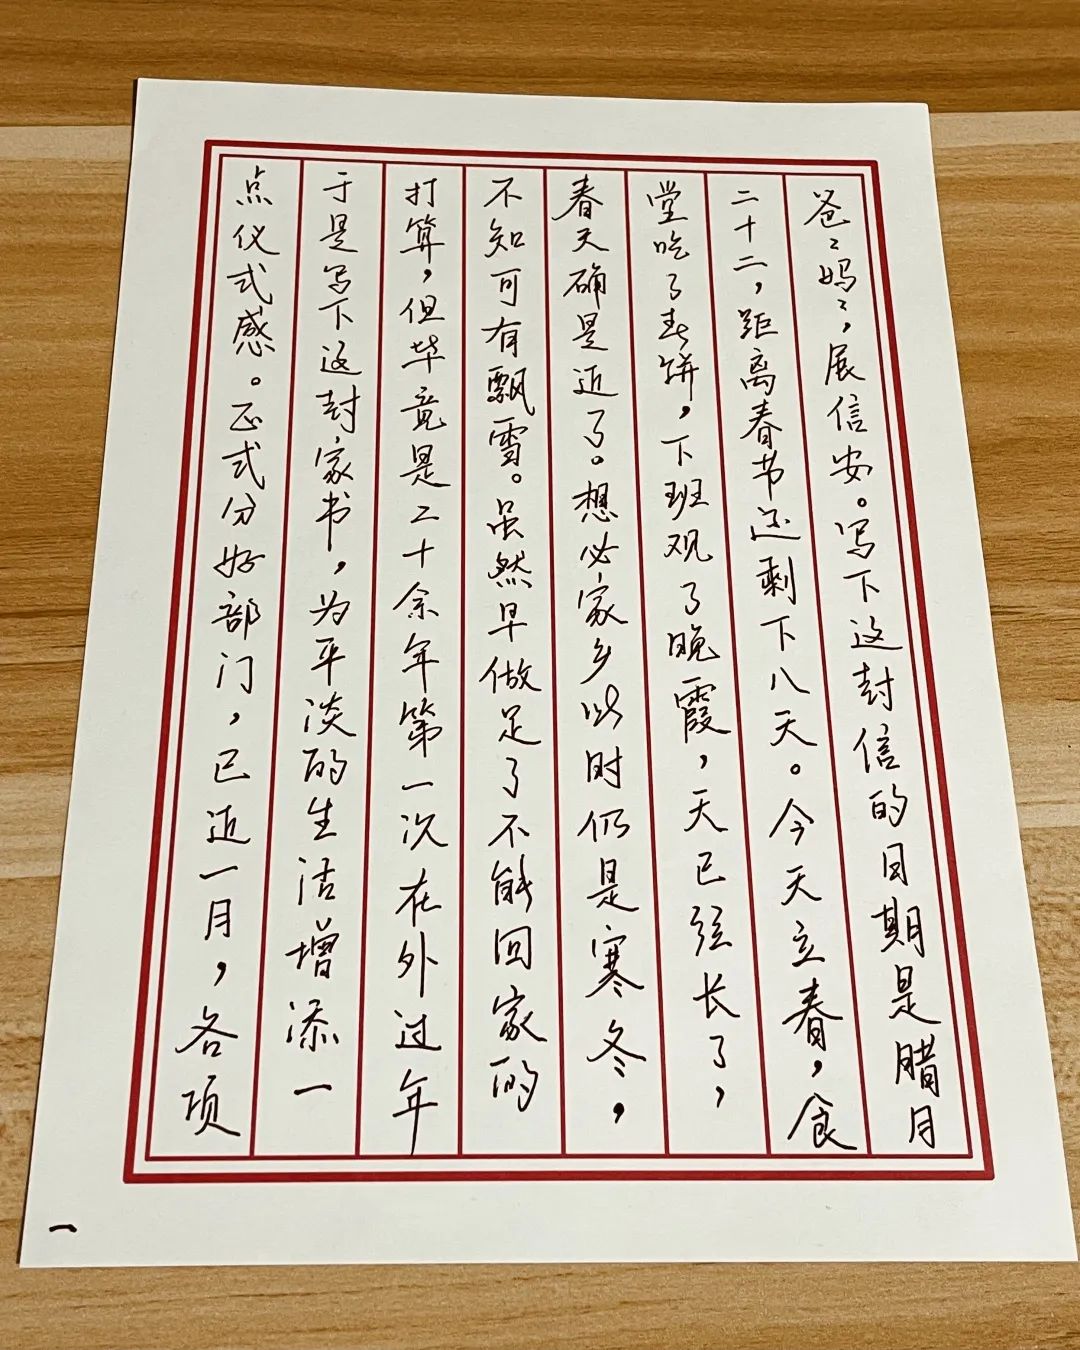 爸〻妈〻，展信安。写下这封信的日期是腊月
二十二，距离春节还剩下八天。今天立春，食
堂吃了春饼，下班观了晚霞，天已弦长了，
春天确是近了。想必家乡以时仍是寒冬，
不知可有飘雪。虽然早做足了不能回家的
打算，但毕竟是二十余年第一次在外过年
于是写下这封家书，为平淡的生活增添一
点仪式感。正式分好部门，已近一月，各项
一